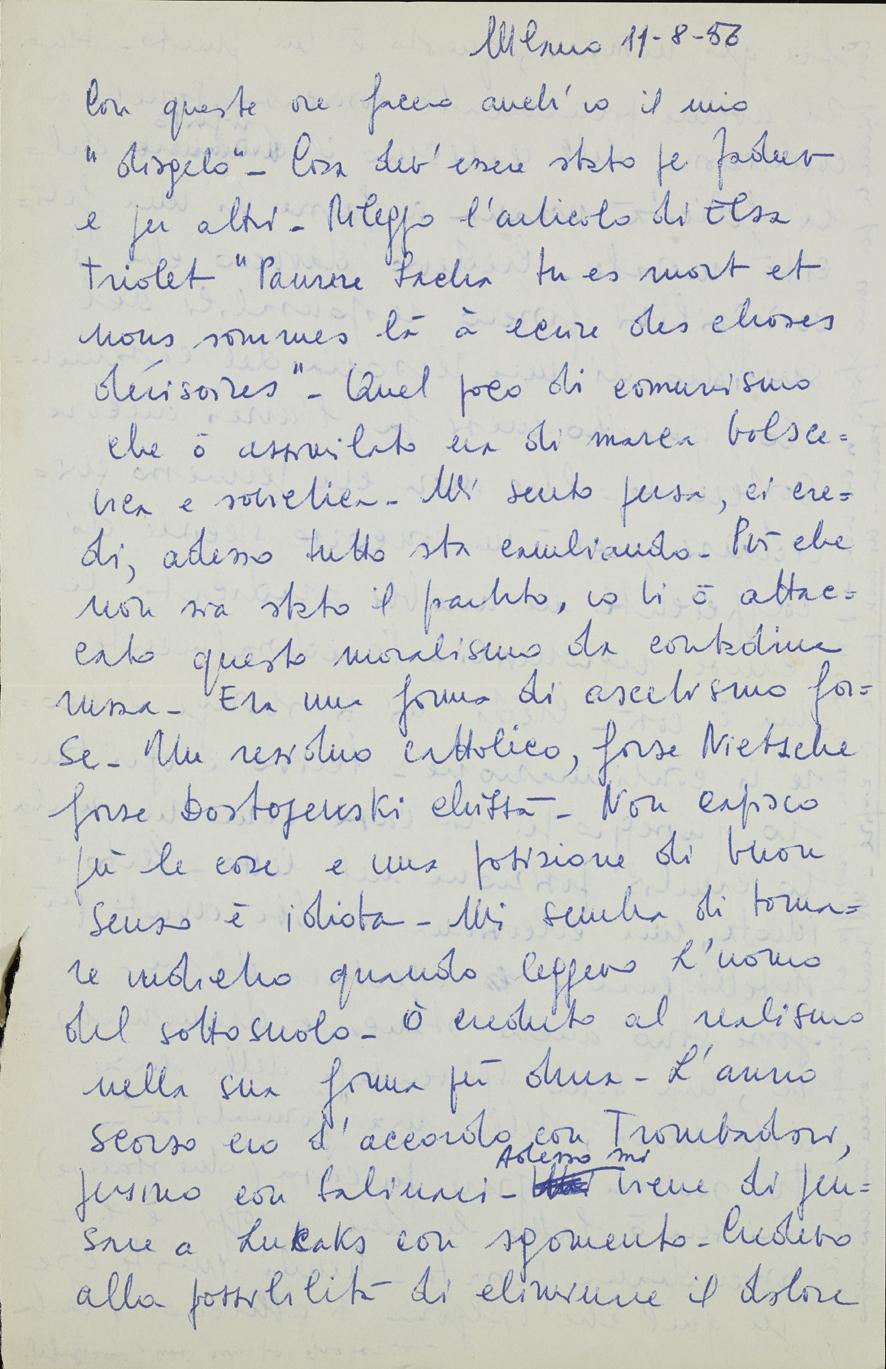 Milano 11-8-56
Con queste ore faccio anch'io il mio
"disgelo" - Cosa dev'essere stato per Fadeev
e per altri - Rileggo l'articolo di Elsa
Triolet "Pauvre Sacha tu es mort et
nous sommes là à ecrire des choses
dérisoires" - Quel poco di comunismo
che ō assimilato era di marca bolsce=
vica e sovietica - Mi sento persa, ci cre=
di, adesso tutto sta cambiando - Più che
non sia stato il partito, io li ō attac=
cato questo moralismo da contadina
russa - Era una forma di ascetismo for=
se - Un residuo cattolico, forse Nietzsche
forse Dostojevski chissà - Non capisco
più le cose e una posizione di buon
senso è idiota - Mi sembra di torna=
re indietro quando leggevo L'uomo
del sottosuolo - Ō creduto al realismo
nella sua forma più dura - L'anno
scorso ero d'accordo con Trombadori,
persino con Salinari - Adesso mi viene di pen=
sare a Lukaks con sgomento - Credevo
alla possibilità di eliminare il dolore